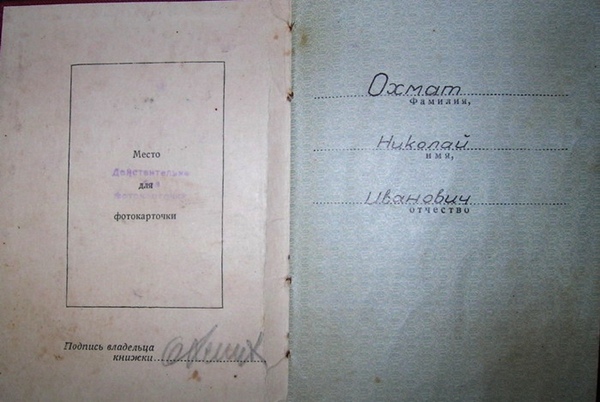 Место
Действительно
без
для
фотокарточки
фотокарточки
Подпись владельца
книжки
Охмат
Фамилия,
Николай
имя,
Иванович
отчество